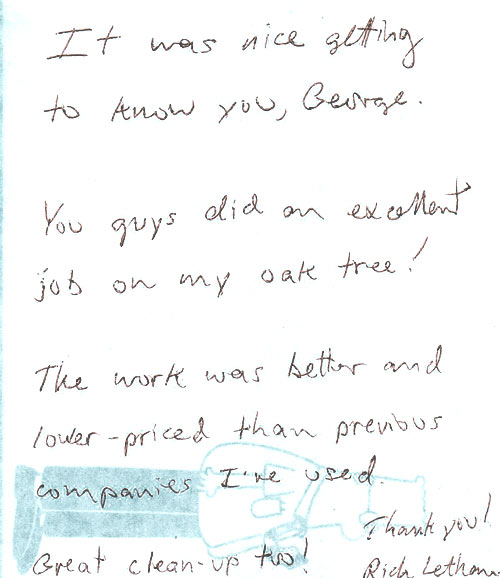 It was nice getting
to know you, George.
You guys did an excellent
job on my oak tree!
The work was better and
lower-priced than previous
companies I've used.
Thank you!
Great clean-up too!
Rich